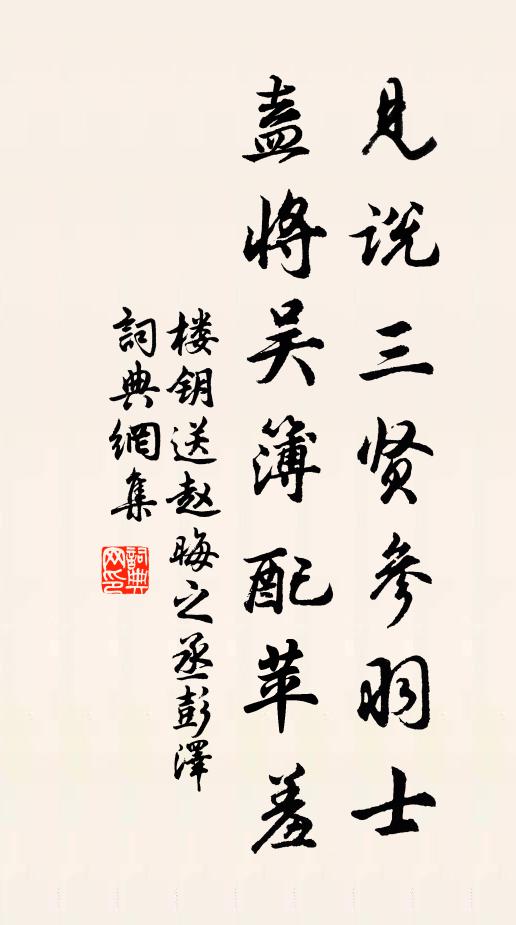 见说三贤参羽士
盍将吴簿配苹羞
楼钥送赵晦之丞彭泽
词典网集
词典网印